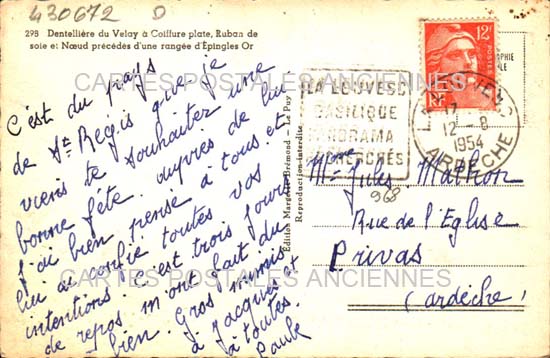 430672 D
298 Dentellière du Velay à Coiffure plate, Ruban de
soie et Nœud précédés d'une rangée d'Épingles Or
C'est du pays
de St Régis que je
viens te souhaiter une
bonne fête. auprès de lui
j'ai bien pensé à tous et
lui ai confié toutes vos
intentions. C'est trois jours
de repos m'ont fait du
bien. Gros mimis
à Jacques et
à toutes.
Paule
Édition Margerit-Brémond - Le Puy
Reproduction interdite
LA LOUVESC
BASILIQUE
PANORAMA
RECHERCHÉS
17
12 - 8
1954
ARDECHE
12F
POSTES
RF
Mme Jules Mathon
968
Rue de l'Eglise
Privas
(Ardèche)
CARTES POSTALES ANCIENNES
CARTES POSTALES ANCIENNES